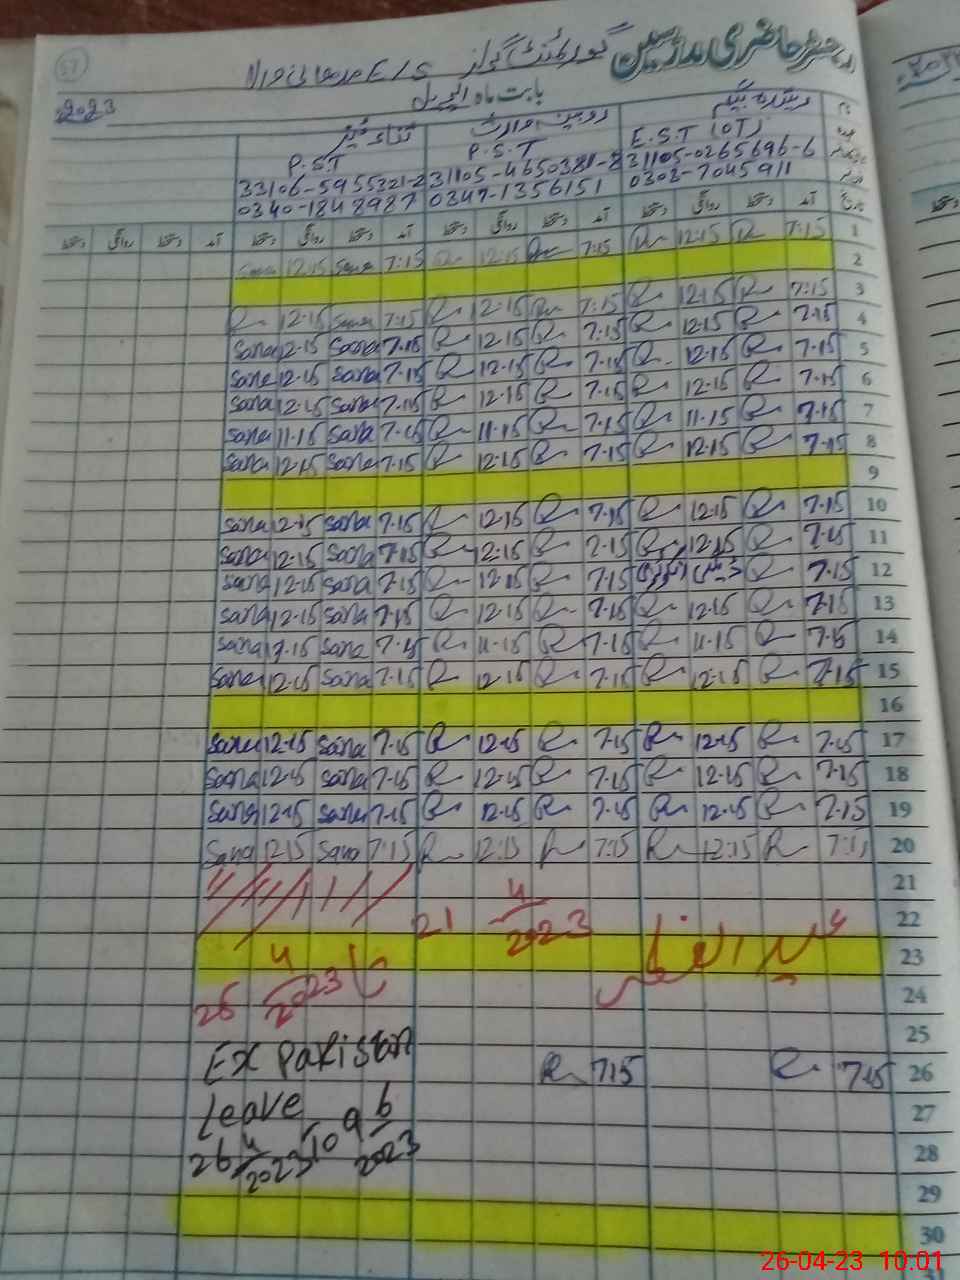 رجسٹر حاضری مدرسین گورنمنٹ گرلز E/S
بابت ماہ اپریل 2023
ثناء
E.S.T (OT) P.S.T P.S.T
31105-0265696-6 31105-4650381-8 33106-5955321-2
0303-7045911 0347-1356151 0340-1848987
آمد دستخط روانگی دستخط آمد دستخط روانگی دستخط آمد دستخط روانگی دستخط آمد دستخط روانگی دستخط
1 7:15 R 12:15 R 7:15 R 12:15 R 7:15 Sana 12:15 Sana
2
3 7:15 R 12:15 R 7:15 R 12:15 R 7:15 Sana 12:15 R
4 7.15 R 12.15 R 7.15 R 12.15 R 7.15 Sana 12.15 Sana
5 7.15 R 12.15 R 7.15 R 12.15 R 7.15 Sana 12.15 Sana
6 7.15 R 12.15 R 7.15 R 12.15 R 7.15 Sana 12.15 Sana
7 7.15 R 11.15 R 7.15 R 11.15 R 7.15 Sana 11.15 Sana
8 7.15 R 12.15 R 7.15 R 12.15 R 7.15 Sana 12.15 Sana
9
10 7.15 R 12.15 R 7.15 R 12.15 R 7.15 Sana 12.15 Sana
11 7.15 R 12.15 R 7.15 R 12.15 R 7.15 Sana 12.15 Sana
12 7.15 R 7.15 R 12.15 R 7.15 Sana 12.15 Sana
13 7.15 R 12.15 R 7.15 R 12.15 R 7.15 Sana 12.15 Sana
14 7.15 R 11.15 R 7.15 R 11.15 R 7.15 Sana 17.15 Sana
15 7.15 R 12.15 R 7.15 R 12.15 R 7.15 Sana 12.15 Sana
16
17 7.15 R 12.15 R 7.15 R 12.15 R 7.15 Sana 12.15 Sana
18 7.15 R 12.15 R 7.15 R 12.15 R 7.15 Sana 12.15 Sana
19 7.15 R 12.15 R 7.15 R 12.15 R 7.15 Sana 12.15 Sana
20 7:15 R 12:15 R 7:15 R 12:15 R 7:15 Sana 12:15 Sana
21
22
21 4/2023
23
عید الفطر
26 4/2023 تا
24
25
Ex Pakistan
26 7.15 R 7.15 R
27
Leave
28
26 4/2023 To 9 6/2023
29
30
26-04-23 10:01